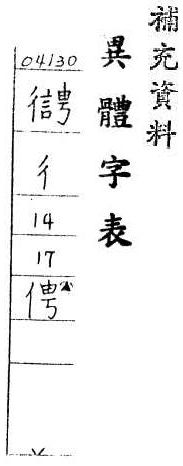 補充資料
異體字表
04130
彳
14
17
俜▲